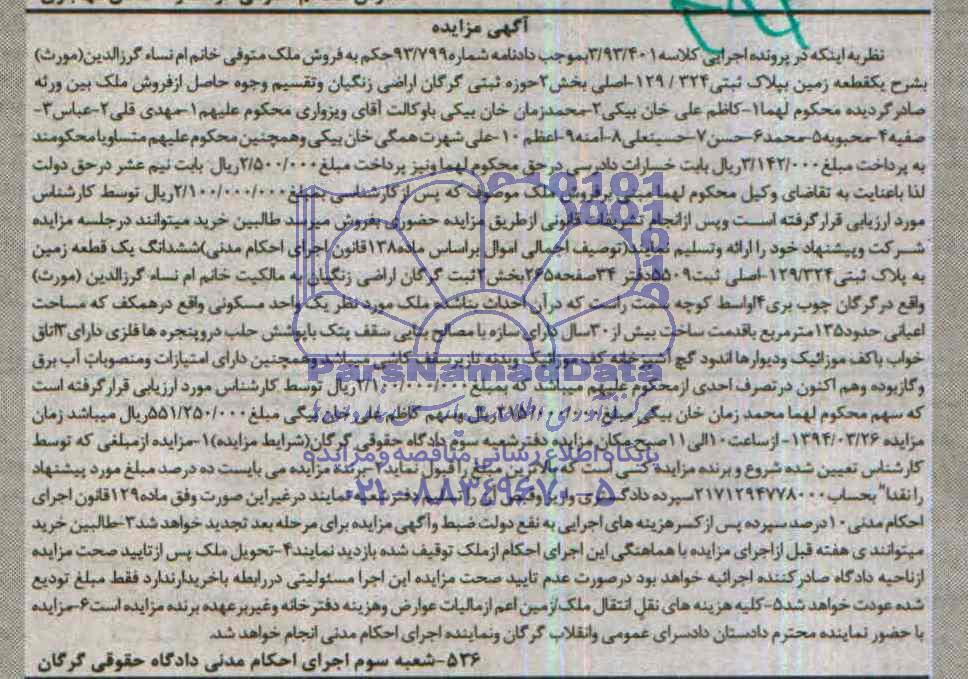 آگهی مزایده
نظر به اینکه در پرونده اجرایی کلاسه ۳/۹۳/۴۰۱ بموجب دادنامه شماره ۹۳/۷۹۹ حکم به فروش ملک متوفی خانم ام نساء گرزالدین (مورث)
بشرح یکقطعه زمین پپلاک ثبتی ۳۲۴ / ۱۲۹-اصلی بخش ۲ حوزه ثبتی گرگان اراضی زنگیان وتقسیم وجوه حاصل ازفروش ملک بین ورثه
صادر گردیده محکوم لهما ۱-کاظم علی خان بیکی ۲-محمدزمان خان بیکی باوکالت آقای ویزواری محکوم علیهم ۱-مهدی قلی ۲-عباس ۳-
صفیه ۴-محبوبه ۵-محمد ۶-حسن ۷-حسینعلی ۸-آمنه ۹-اعظم ۱۰-علی شهرت همگی خان بیکی وهمچنین محکوم علیهم متساویا محکومند
به پرداخت مبلغ ۳/۱۴۲/۰۰۰ ریال بابت خسارات دادرسی در حق محکوم لهما ونیز پرداخت مبلغ ۲/۵۰۰/۰۰۰ ریال بابت نیم عشر درحق دولت
لذا باعنایت به تقاضای وکیل محکوم لهما مبنی برفروش ملک موصوف که پس ازکارشناسی بمبلغ ۲/۱۰۰/۰۰۰/۰۰۰ ریال توسط کارشناس
مورد ارزیابی قرار گرفته است وپس ازانجام تشریفات قانونی ازطریق مزایده حضوری بفروش میرسد طالبین خرید میتوانند درجلسه مزایده
شرکت وپیشنهاد خود را ارائه وتسلیم نمایند(توصیف اجمالی اموال براساس ماده ۱۳۸ قانون اجرای احکام مدنی)ششدانگ یک قطعه زمین
به پلاک ثبتی ۱۲۹/۳۲۴-اصلی ثبت ۵۵۰۹ دفتر ۳۴ صفحه ۲۶۵ بخش ۲ ثبت گرگان اراضی زنگیان به مالکیت خانم ام نساء گرزالدین (مورث)
واقع در گرگان چوب بری ۴ اواسط کوچه سمت راست که درآن احداث بناشده ملک مورد نظر یک واحد مسکونی واقع درهمکف که مساحت
اعیانی حدود ۱۳۵ مترمربع باقدمت ساخت بیش از ۳۰ سال دارای سازه با مصالح بنایی سقف پتک باپوشش حلب دروپنجره ها فلزی دارای ۳ اتاق
خواب باکف موزائیک ودیوارها اندود گچ آشپزخانه کف موزائیک وبدنه تازیرسقف کاشی میباشد وهمچنین دارای امتیازات ومنصوبات آب برق
وگاز بوده وهم اکنون درتصرف احدی ازمحکوم علیهم میباشد که بمبلغ ۲/۱۰۰/۰۰۰/۰۰۰ ریال توسط کارشناس مورد ارزیابی قرار گرفته است
که سهم محکوم لهما محمد زمان خان بیکی مبلغ ریال وسهم کاظم علی خان بیگی مبلغ ۵۵۱/۲۵۰/۰۰۰ ریال میباشد زمان
مزایده ۱۳۹۴/۰۳/۲۶- ازساعت ۱۰ الی ۱۱ صبح مکان مزایده دفتر شعبه سوم دادگاه حقوقی گرگان(شرایط مزایده) ۱-مزایده ازمبلغی که توسط
کارشناس تعیین شده شروع و برنده مزایده کسی است که بالاترین مبلغ را قبول نماید ۲-برنده مزایده می بایست ده درصد مبلغ مورد پیشنهاد
را نقدا" بحساب ۲۱۷۱۲۹۴۷۷۸۰۰۰ سپرده دادگستری واریز وفیش آن را تسلیم دفتر شعبه نمایند درغیراین صورت وفق ماده ۱۲۹ قانون اجرای
احکام مدنی ۱۰ درصد سپرده پس ازکسرهزینه های اجرایی به نفع دولت ضبط وآگهی مزایده برای مرحله بعد تجدید خواهد شد ۳-طالبین خرید
میتوانند ی هفته قبل ازاجرای مزایده با هماهنگی این اجرای احکام ازملک توقیف شده بازدید نمایند ۴-تحویل ملک پس ازتایید صحت مزایده
ازناحیه دادگاه صادر کننده اجرائیه خواهد بود درصورت عدم تایید صحت مزایده این اجرا مسئولیتی دررابطه باخریدارندارد فقط مبلغ تودیع
شده عودت خواهد شد ۵-کلیه هزینه های نقل انتقال ملک ازمین اعم ازمالیات عوارض وهزینه دفترخانه وغیربرعهده برنده مزایده است ۶-مزایده
با حضور نماینده محترم دادستان دادسرای عمومی وانقلاب گرگان ونماینده اجرای احکام مدنی انجام خواهد شد.
۵۳۶-شعبه سوم اجرای احکام مدنی دادگاه حقوقی گرگان
ParsNamadData
پایگاه اطلاع رسانی مناقصه و مزایده
۰۲۱-۸۸۳۴۹۶۷۰-۵